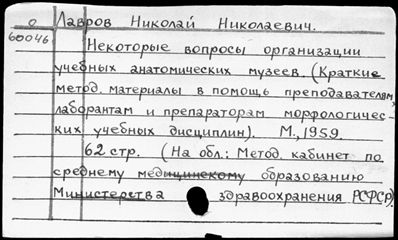 О Лавров Николай Николаевич.
60046
Некоторые вопросы организации
учебных анатомических музеев. (Краткие
метод. материалы в помощь преподавателям,
лаборантам и препараторам морфологичес-
ких учебных дисциплин). М., 1959.
62 стр. (На обл.: Метод. кабинет по
среднему медицинскому образованию
Министерства здравоохранения РСФСР).